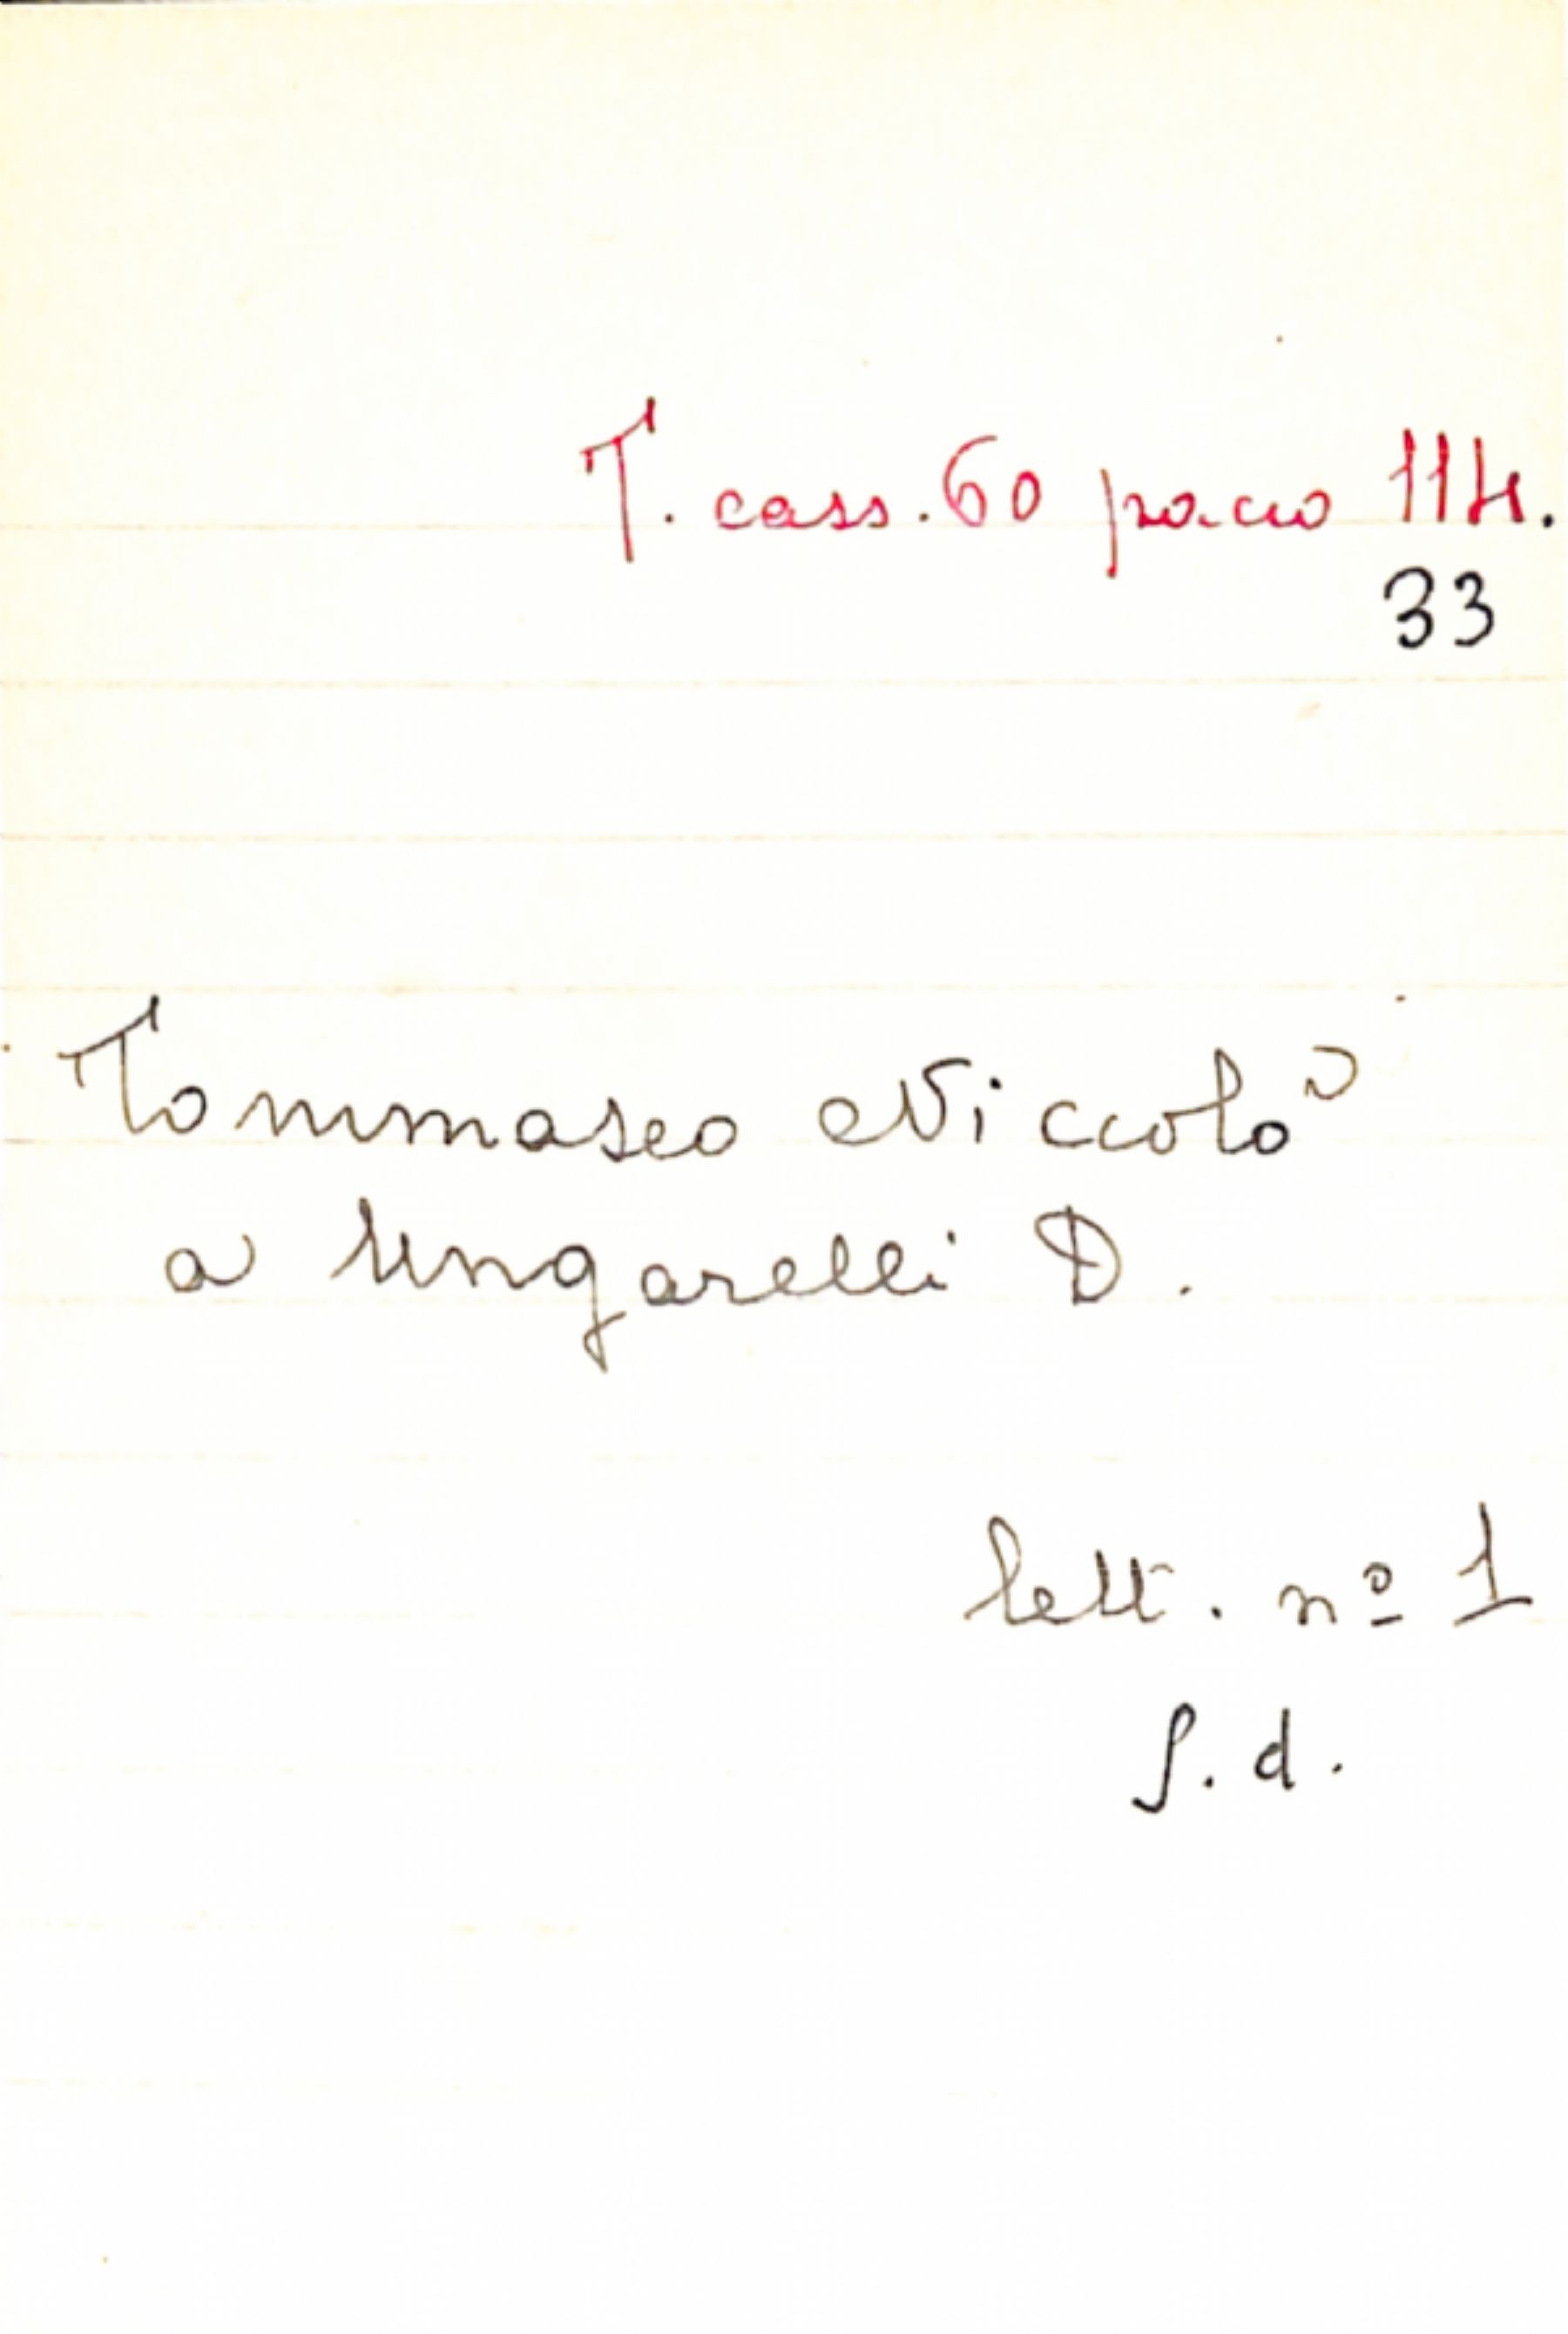 T. cass. 60 pacco 114.
33
Tommaseo Niccolò
a Ungarelli D.
lett. nº 1
s. d.